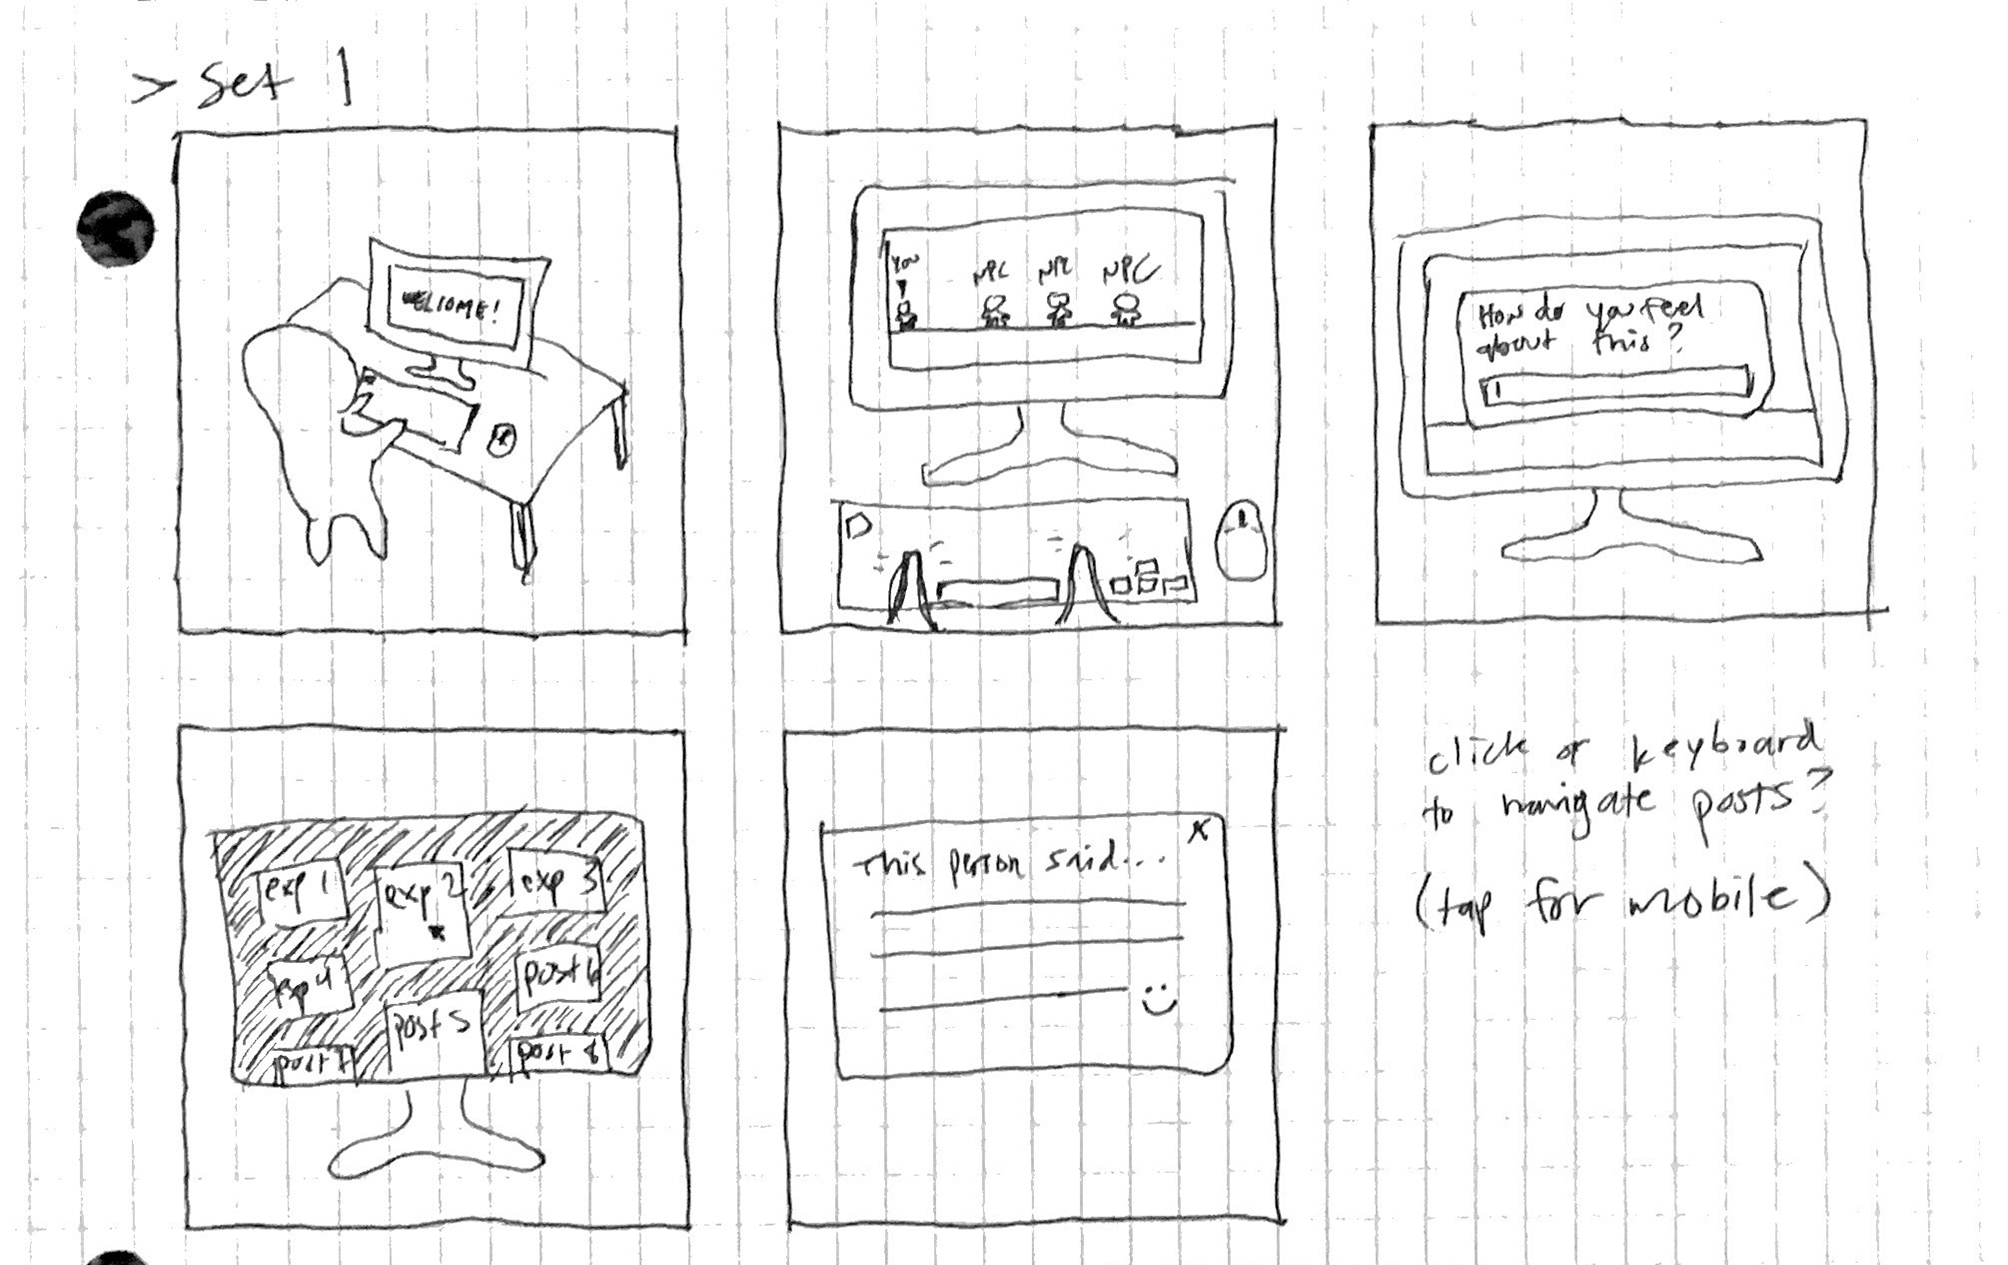 > Set 1
WELCOME!
You
NPC NPC NPC
How do you feel
about this?
exp 1 exp 2 exp 3
exp 4 post 6
post 5
post 7 post 8
This person said... x
click or keyboard
to navigate posts?
(tap for mobile)